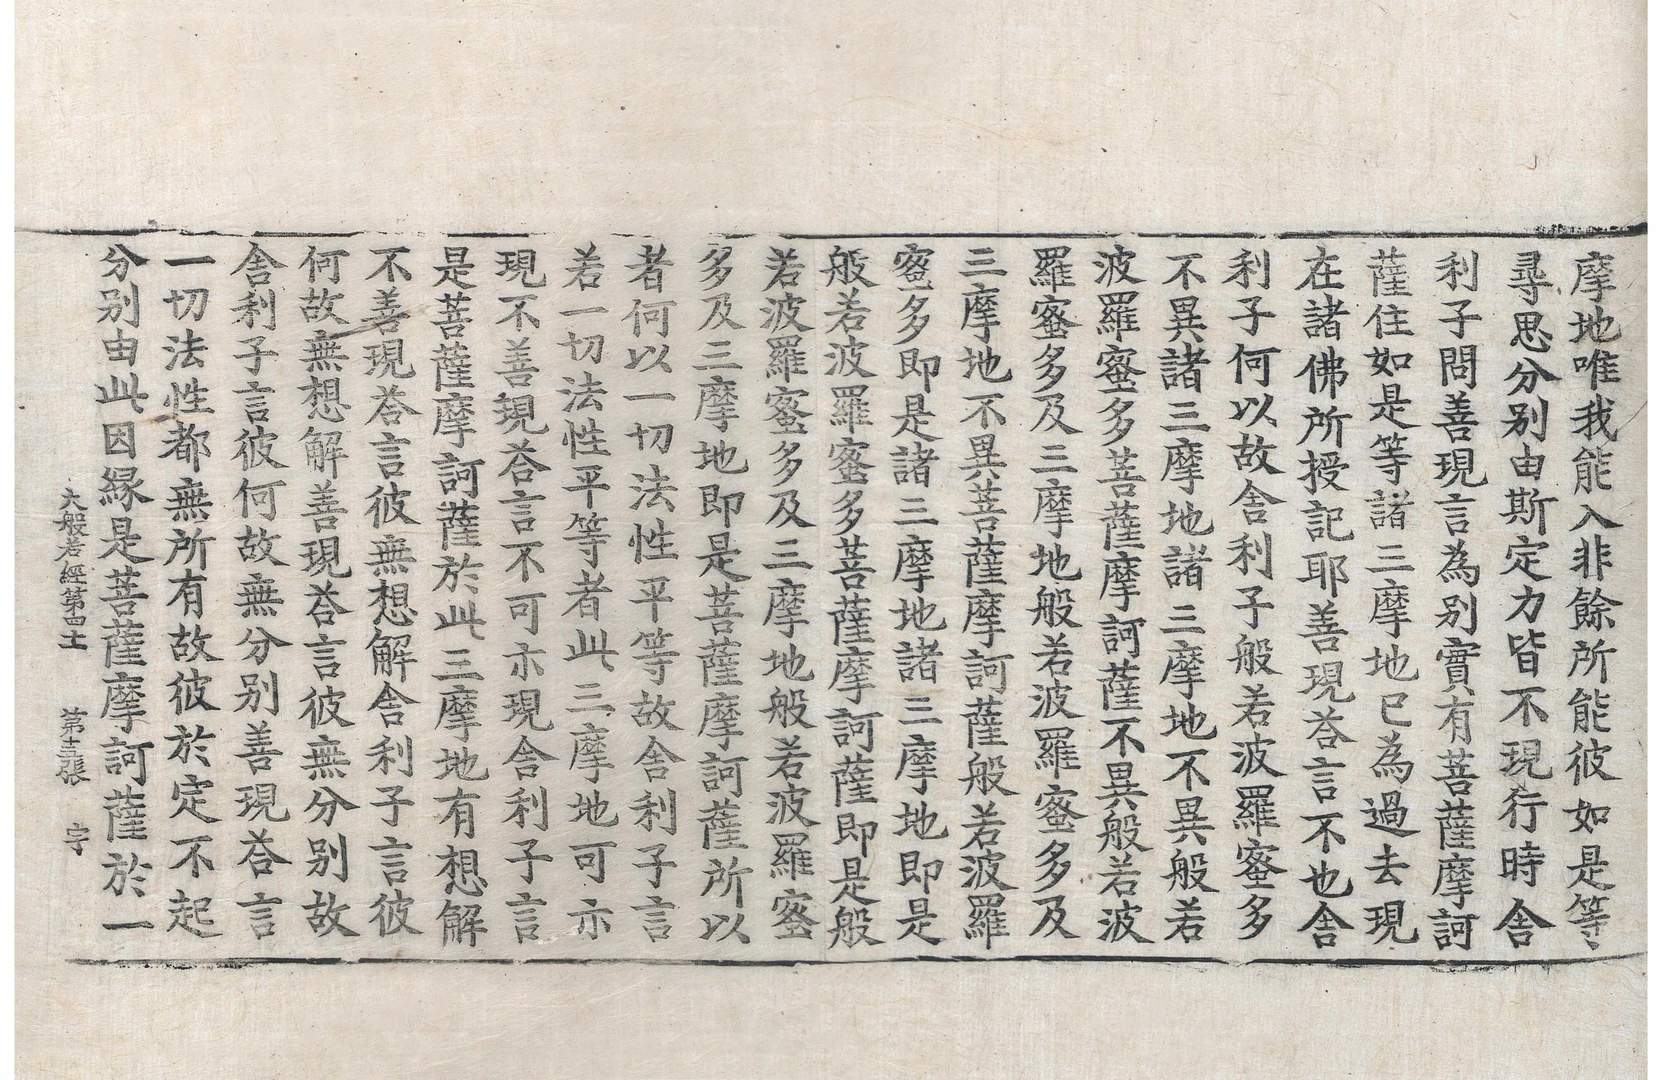 摩地唯我能入非餘所能彼如是等
尋思分别由斯定力皆不現行時舎
利子問善現言為别實有菩薩摩訶
薩住如是等諸三摩地已為過去現
在諸佛所授記耶善現荅言不也舎
利子何以故舎利子般若波羅蜜多
不異諸三摩地諸三摩地不異般若
波羅蜜多菩薩摩訶薩不異般若波
羅蜜多及三摩地般若波羅蜜多及
三摩地不異菩薩摩訶薩般若波羅
蜜多即是諸三摩地諸三摩地即是
般若波羅蜜多菩薩摩訶薩即是般
若波羅蜜多及三摩地般若波羅蜜
多及三摩地即是菩薩摩訶薩所以
者何以一切法性平等故舎利子言
若一切法性平等者此三摩地可亦
現不善現荅言不可亦現舎利子言
是菩薩摩訶薩於此三摩地有想解
不善現荅言彼無想解舎利子言彼
何故無想解善現荅言彼無分别故
舎利子言彼何故無分别善現荅言
一切法性都無所有故彼於定不起
分别由此因緣是菩薩摩訶薩於一
大般若經第四十一 第十三張 字